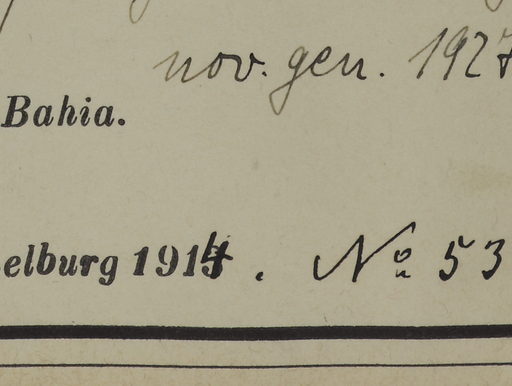 nov. gen. 1927
Bahia.
elburg 1914. Nº 53